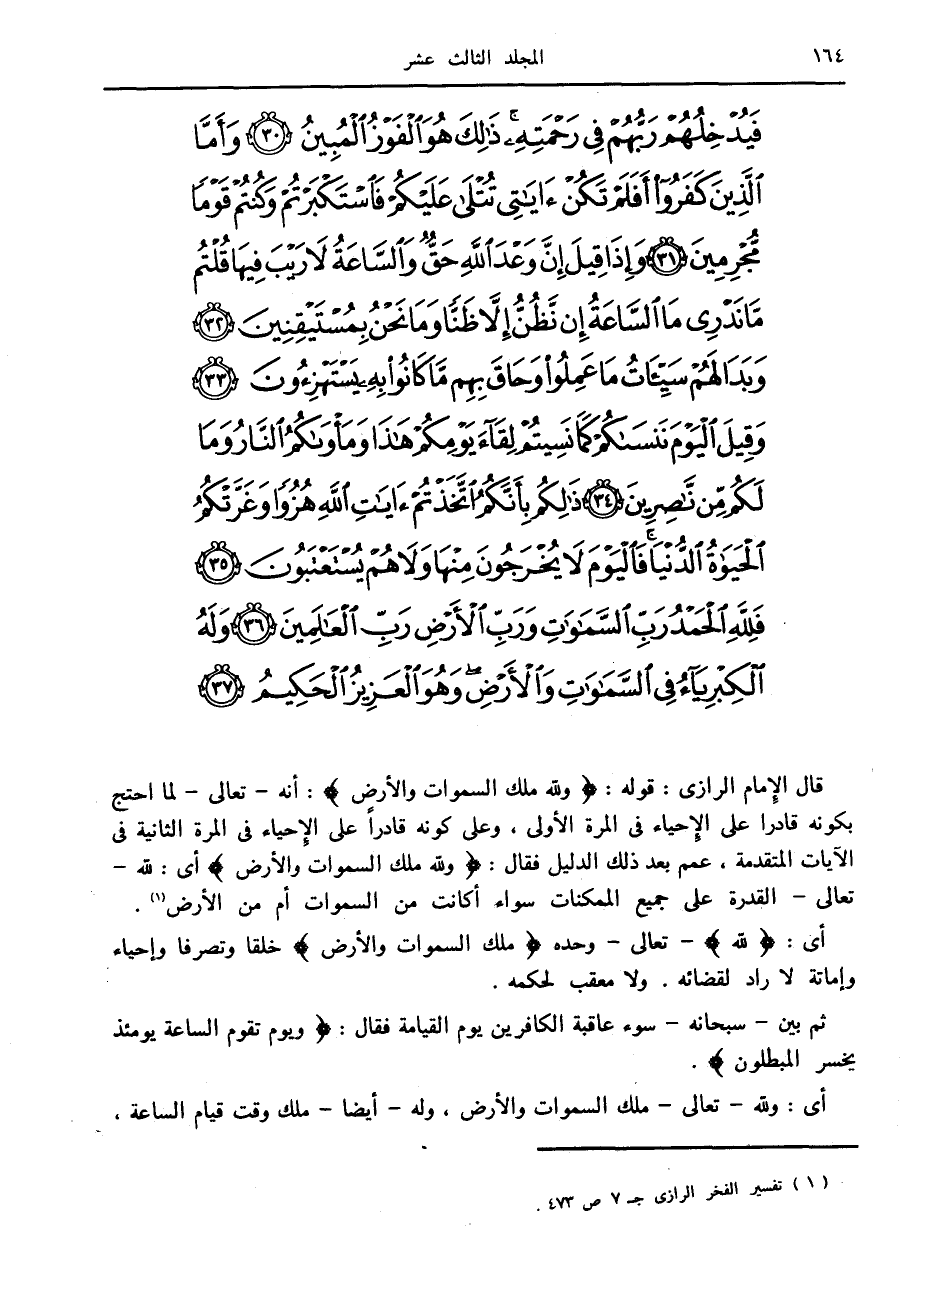 ١٦٤ المجلد الثالث عشر
فَيُدْخِلُهُمْ رَبُّهُمْ فِي رَحْمَتِهِۦۚ ذَٰلِكَ هُوَ ٱلْفَوْزُ ٱلْمُبِينُ ٣٠ وَأَمَّا
ٱلَّذِينَ كَفَرُوٓا۟ أَفَلَمْ تَكُنْ ءَايَٰتِى تُتْلَىٰ عَلَيْكُمْ فَٱسْتَكْبَرْتُمْ وَكُنتُمْ قَوْمًا
مُّجْرِمِينَ ٣١ وَإِذَا قِيلَ إِنَّ وَعْدَ ٱللَّهِ حَقٌّ وَٱلسَّاعَةُ لَا رَيْبَ فِيهَا قُلْتُم
مَّا نَدْرِى مَا ٱلسَّاعَةُ إِن نَّظُنُّ إِلَّا ظَنًّا وَمَا نَحْنُ بِمُسْتَيْقِنِينَ ٣٢
وَبَدَا لَهُمْ سَيِّـَٔاتُ مَا عَمِلُوا۟ وَحَاقَ بِهِم مَّا كَانُوا۟ بِهِۦ يَسْتَهْزِءُونَ ٣٣
وَقِيلَ ٱلْيَوْمَ نَنسَىٰكُمْ كَمَا نَسِيتُمْ لِقَآءَ يَوْمِكُمْ هَٰذَا وَمَأْوَىٰكُمُ ٱلنَّارُ وَمَا
لَكُم مِّن نَّٰصِرِينَ ٣٤ ذَٰلِكُم بِأَنَّكُمُ ٱتَّخَذْتُمْ ءَايَٰتِ ٱللَّهِ هُزُوًا وَغَرَّتْكُمُ
ٱلْحَيَوٰةُ ٱلدُّنْيَاۚ فَٱلْيَوْمَ لَا يُخْرَجُونَ مِنْهَا وَلَا هُمْ يُسْتَعْتَبُونَ ٣٥
فَلِلَّهِ ٱلْحَمْدُ رَبِّ ٱلسَّمَٰوَٰتِ وَرَبِّ ٱلْأَرْضِ رَبِّ ٱلْعَٰلَمِينَ ٣٦ وَلَهُ
ٱلْكِبْرِيَآءُ فِى ٱلسَّمَٰوَٰتِ وَٱلْأَرْضِۖ وَهُوَ ٱلْعَزِيزُ ٱلْحَكِيمُ ٣٧
قال الإمام الرازى : قوله : ﴿ ولله ملك السموات والأرض ﴾ : أنه - تعالى - لما احتج
بكونه قادرا على الإحياء فى المرة الأولى ، وعلى كونه قادراً على الإحياء فى المرة الثانية فى
الآيات المتقدمة ، عمم بعد ذلك الدليل فقال : ﴿ ولله ملك السموات والأرض ﴾ أى : لله -
تعالى - القدرة على جميع الممكنات سواء أكانت من السموات أم من الأرض(١) .
أى : ﴿ لله ﴾ - تعالى - وحده ﴿ ملك السموات والأرض ﴾ خلقا وتصرفا وإحياء
وإماتة لا راد لقضائه . ولا معقب لحكمه .
ثم بين - سبحانه - سوء عاقبة الكافرين يوم القيامة فقال : ﴿ ويوم تقوم الساعة يومئذ
يخسر المبطلون ﴾ .
أى : ولله - تعالى - ملك السموات والأرض ، وله - أيضا - ملك وقت قيام الساعة ،
( ١ ) تفسير الفخر الرازى جـ ٧ ص ٤٧٣ .